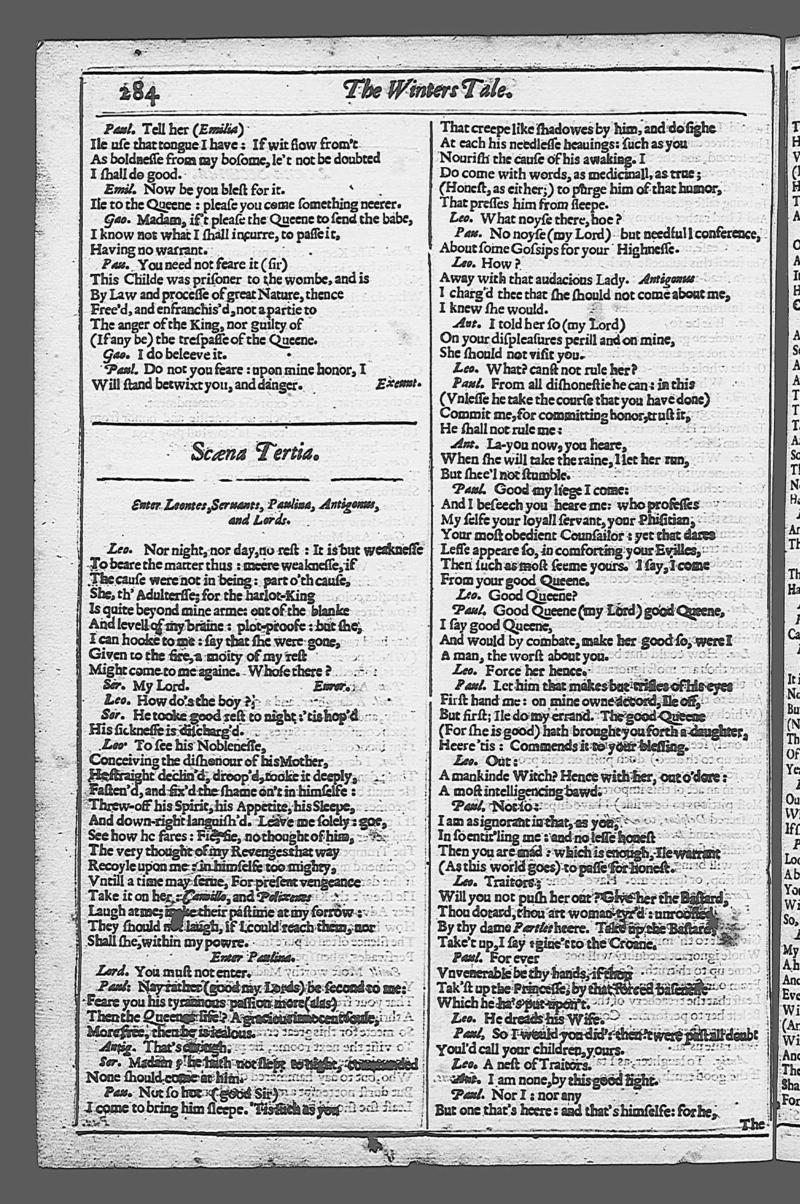 284
The Winters Tale.
Paul. Tell her (Emilia)
Ile use that tongue I have : If wit flow from't
As boldnesse from my bosome, le't not be doubted
I shall do good.
Emil. Now be you blest for it.
Ile to the Queene : please you come something neerer.
Gao. Madam, if't please the Queene to send the babe,
I know not what I shall incurre, to passe it,
Having no warrant.
Pau. You need not feare it (sir)
This Childe was prisoner to the wombe, and is
By Law and processe of great Nature, thence
Free'd, and enfranchis'd, not a partie to
The anger of the King, nor guilty of
(If any be) the trespasse of the Queene.
Gao. I do beleeve it.
Paul. Do not you feare : upon mine honor, I
Will stand betwixt you, and danger. Exeunt.
Scæna Tertia.
Enter Leontes, Servants, Paulina, Antigonus,
and Lords.
Leo. Nor night, nor day, no rest : It is but weaknesse
To beare the matter thus : meere weaknesse, if
The cause were not in being : part o'th cause,
She, th' Adulteresse; for the harlot-King
Is quite beyond mine arme: out of the blanke
And levell of my braine : plot-proofe : but she,
I can hooke to me : say that she were gone,
Given to the fire, a moity of my rest
Might come to me againe. Whose there ?
Ser. My Lord. Enter.
Leo. How do's the boy ?
Ser. He tooke good rest to night : 'tis hop'd
His sicknesse is discharg'd.
Leo. To see his Noblenesse,
Conceiving the dishonour of his Mother,
He straight declin'd, droop'd, tooke it deeply,
Fasten'd, and fix'd the shame on't in himselfe :
Threw-off his Spirit, his Appetite, his Sleepe,
And down-right languish'd. Leave me solely : goe,
See how he fares : Fie, fie, no thought of him,
The very thought of my Revenges that way
Recoyle upon me : in himselfe too mighty,
Vntill a time may serve, For present vengeance
Take it on her : Camillo, and Polixenes
Laugh at me; their pastime at my sorrow :
They should not laugh, if I could reach them, nor
Shall she, within my powre.
Enter Paulina.
Lord. You must not enter.
Paul. Nay rather (good my Lords) be second to me:
Feare you his tyrannous passion more (alas)
Then the Queenes life ? A gracious innocent soule,
More free, then he is iealous.
Antig. That's enough.
Ser. Madam; he hath not slept to night, commanded
None should come at him.
Pau. Not so hot (good Sir)
I come to bring him sleepe. 'Tis such as you
That creepe like shadowes by him, and do sighe
At each his needlesse heauings: such as you
Nourish the cause of his awaking. I
Do come with words, as medicinall, as true;
(Honest, as either;) to purge him of that humor,
That presses him from sleepe.
Leo. What noyse there, hoe ?
Pau. No noyse (my Lord) but needfull conference,
About some Gossips for your Highnesse.
Leo. How ?
Away with that audacious Lady. Antigonus
I charg'd thee that she should not come about me,
I knew she would.
Ant. I told her so (my Lord)
On your displeasures perill and on mine,
She should not visit you.
Leo. What? canst not rule her?
Paul. From all dishonestie he can : in this
(Vnlesse he take the course that you have done)
Commit me, for committing honor, trust it,
He shall not rule me :
Ant. La-you now, you heare,
When she will take the raine, I let her run,
But shee'l not stumble.
Paul. Good my liege I come:
And I beseech you heare me: who professes
My selfe your loyall servant, your Phisitian,
Your most obedient Counsailor : yet that dares
Lesse appeare so, in comforting your Evilles,
Then such as most seeme yours. I say, I come
From your good Queene.
Leo. Good Queene?
Paul. Good Queene (my Lord) good Queene,
I say good Queene,
And would by combate, make her good so, were I
A man, the worst about you.
Leo. Force her hence.
Paul. Let him that makes but trifles of his eyes
First hand me : on mine owne accord, Ile off,
But first; Ile do my errand. The good Queene
(For she is good) hath brought you forth a daughter,
Heere 'tis : Commends it to your blessing.
Leo. Out :
A mankinde Witch? Hence with her, out o'dore :
A most intelligencing bawd.
Paul. Not so :
I am as ignorant in that, as you,
In so entit'ling me : and no lesse honest
Then you are mad : which is enough, Ile warrant
(As this world goes) to passe for honest.
Leo. Traitors;
Will you not push her out? Give her the Bastard,
Thou dotard, thou art woman-tyr'd : unroosted
By thy dame Partlet heere. Take up the Bastard,
Take't up, I say : give't to thy Croane.
Paul. For ever
Vnvenerable be thy hands, if thou
Tak'st up the Princesse, by that forced basenesse
Which he ha's put upon't.
Leo. He dreads his Wife.
Paul. So I would you did : then 'twere past all doubt
Youl'd call your children, yours.
Leo. A nest of Traitors.
Ant. I am none, by this good light.
Paul. Nor I : nor any
But one that's heere : and that's himselfe: for he,
The